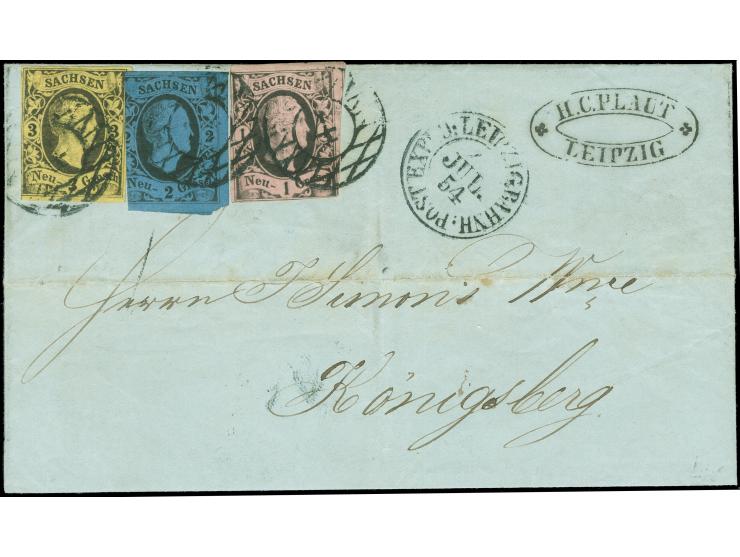 SACHSEN
3
Neu- 3 Grosch
SACHSEN
2
Neu- 2
SACHSEN
1
Neu- 1
POST EXP. LEIPZIG BAHNH:
JUL.
54
H.C.PLAUT
LEIPZIG
Herrn J Simon's Wwe
Königsberg.